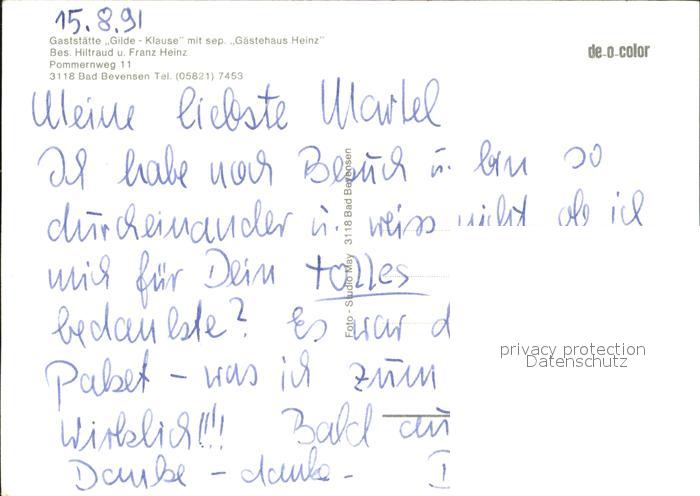 15.8.91
Gaststätte „Gilde - Klause" mit sep. „Gästehaus Heinz"
Bes. Hiltraud u. Franz Heinz
Pommernweg 11
3118 Bad Bevensen Tel. (05821) 7453
de-o-color
Meine liebste Martel
Ich habe noch Besuch u. bin so
durcheinander u. weiss nicht ob ich
mich für Dein tolles
bedankte? Es war d
Paket – was ich zum
wirklich!!! Bald au
Danke – danke –
Foto - Studio May 3118 Bad Bevensen
privacy protection
Datenschutz